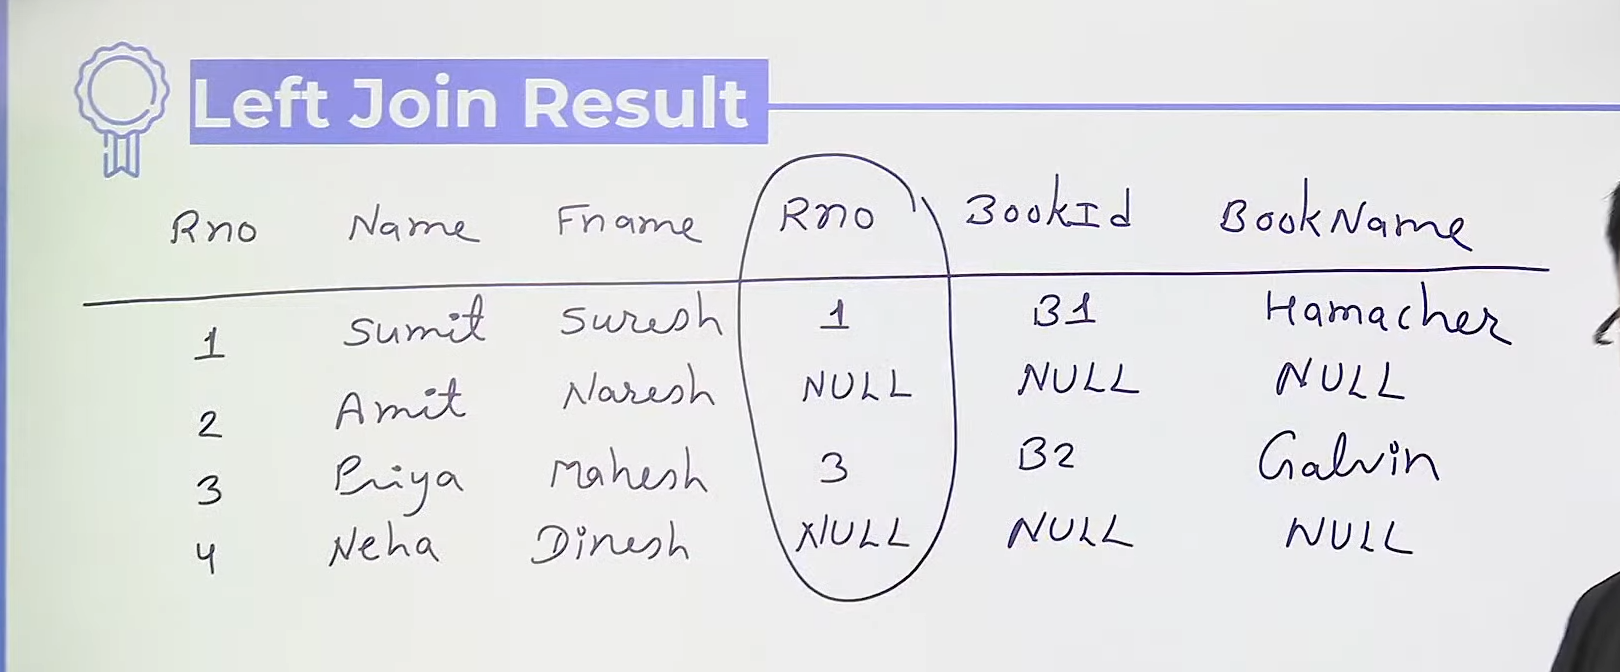 Left Join Result
Rno Name Fname Rno BookId BookName
1 Sumit Suresh 1 B1 Hamacher
2 Amit Naresh NULL NULL NULL
3 Priya Mahesh 3 B2 Galvin
4 Neha Dinesh NULL NULL NULL